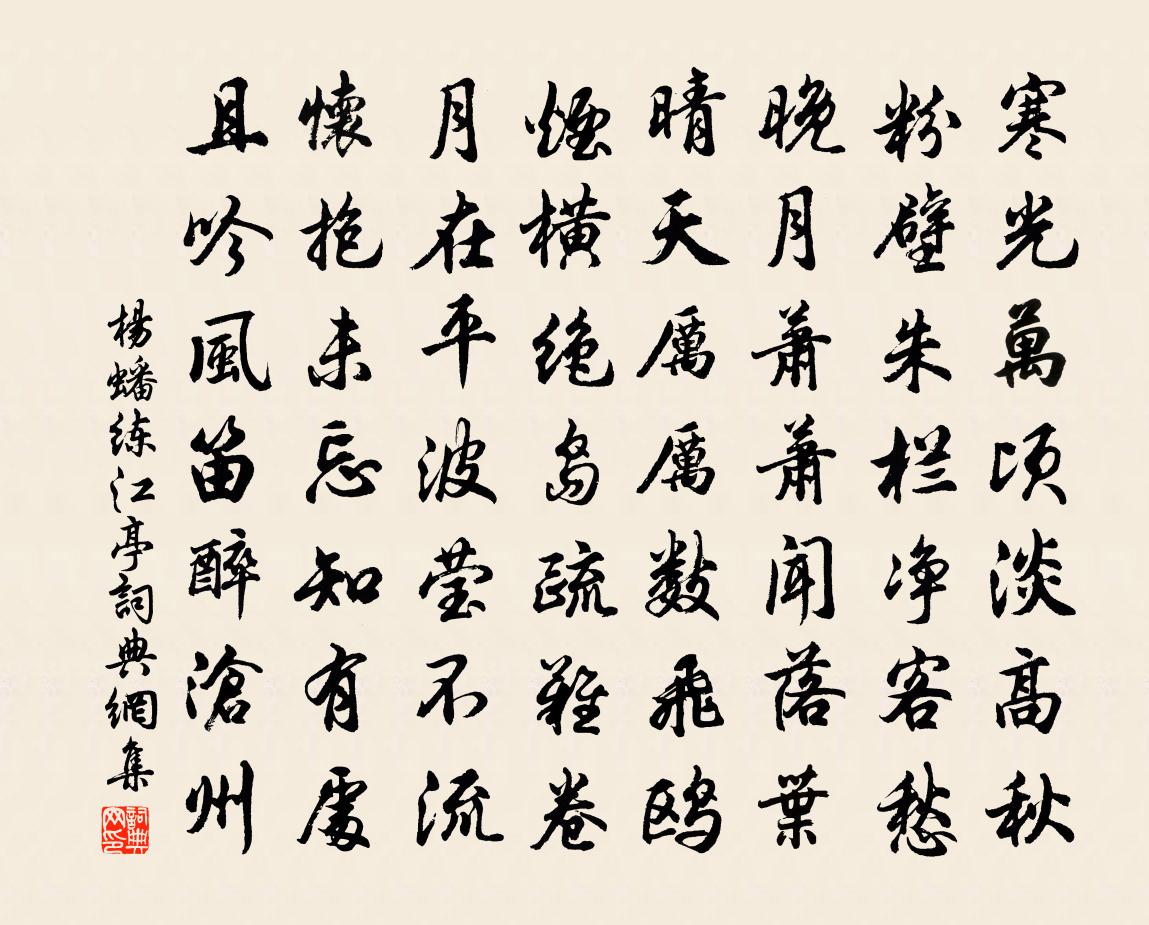 寒光萬頃淡高秋
粉壁朱栏净客愁
晚月萧萧闻落葉
晴天厲厲数飛鸥
煙横绝岛疏難卷
月在平波莹不流
懷抱未忘知有處
且吟風笛醉滄州
楊蟠练江亭詞典網集
詞典网印